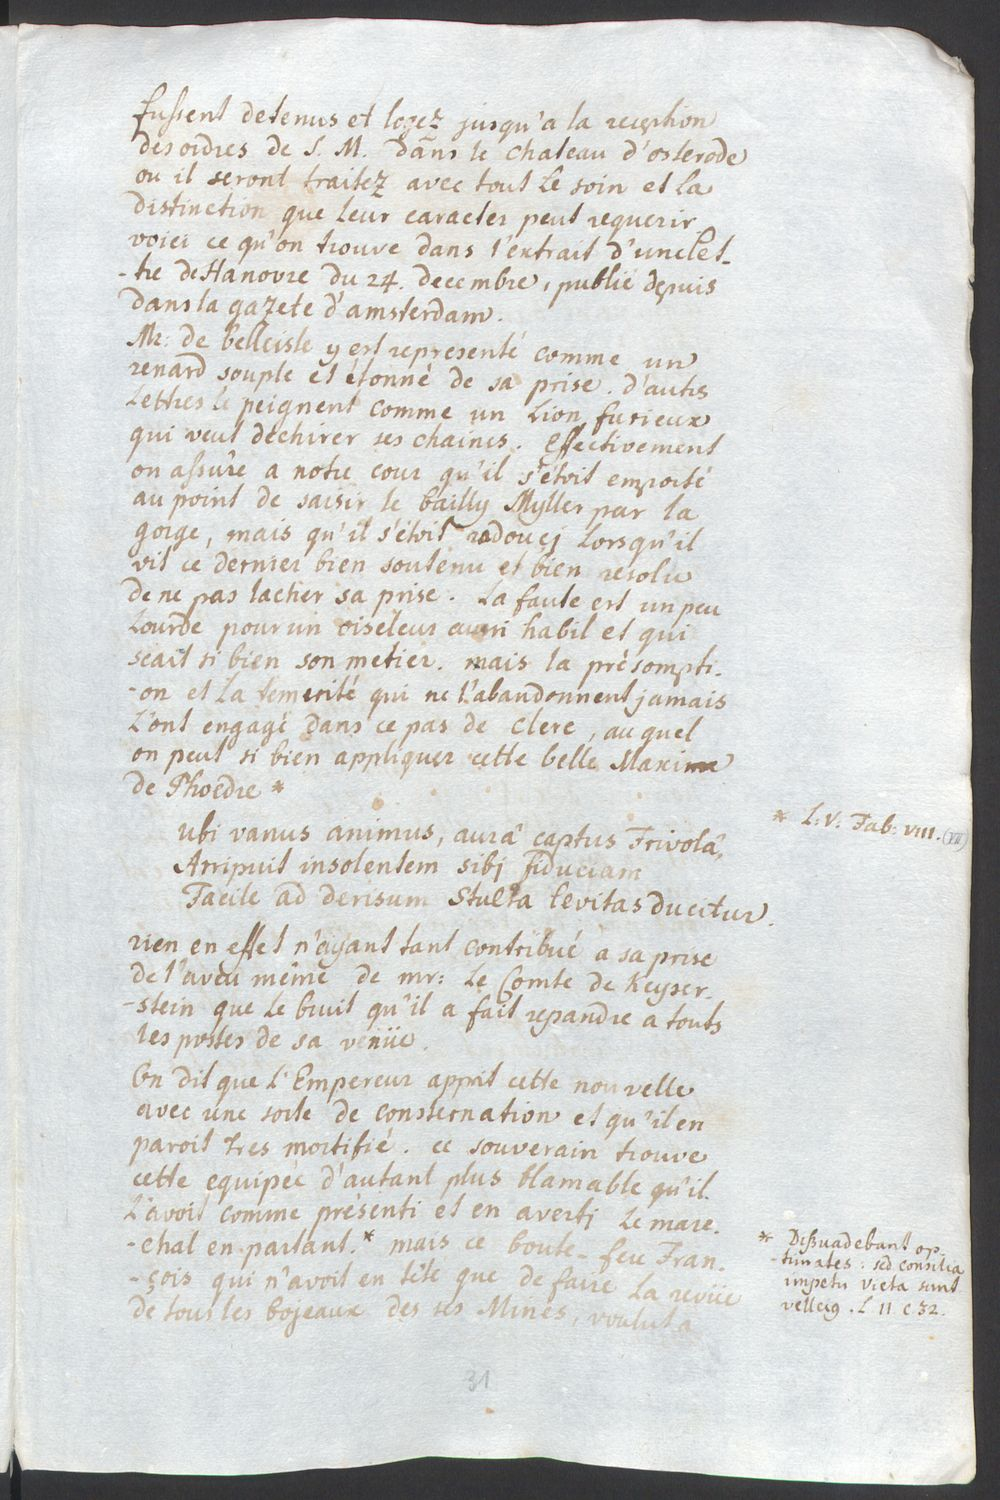 fussent detenus et logez jusqu'a la reception
des ordres de S. M. dans le chateau d'osterode
ou il seront traitez avec tout le soin et la
distinction que leur caracter peut requerir.
voici ce qu'on trouve dans l'extrait d'une let-
-tre de Hanovre du 24. decembre, publié depuis
dans la gazete d'amsterdam.
Mr: de belleisle y est representé comme un
renard souple et étonné de sa prise. d'autrs
Lettres le peignent comme un Lion furieux
qui veut déchirer ses chaines. effectivement
on assûre a notre cour qu'il s'étoit emporté
au point de saisir le bailly Myller par la
gorge, mais qu'il s'étoit radoucj lorsqu'il
vit ce dernier bien soutenu et bien resolu
de ne pas lacher sa prise. La faute est un peu
Lourde pour un oiseleur aussi habil et qui
scait si bien son metier. mais la présompti-
-on et la temerité qui ne l'abandonnent jamais
L'ont engagé dans ce pas de clerc, auquel
on peut si bien appliquer cette belle Maxime
de Phoedre *
* L: V: Fab: VIII. (VII)
Ubi vanus animus, aurâ captus Frivolâ,
Arripuit insolentem sibj fiduciam
Facile ad derisum Stulta levitas ducitur.
rien en effet n'ayant tant contribué a sa prise
de l'aveu même de mr: Le Comte de Keyser-
-stein que le bruit qu'il a fait repandre a touts
les postes de sa venüe.
On dit que L'Empereur apprit cette nouvelle
avec une sorte de consternation et qu'il en
paroit tres mortifié. ce souverain trouve
cette equipée d'autant plus blamable qu'il
L'avoit comme présenti et en averti Le mare-
-chal en partant.* mais ce boute-feu Fran-
-çois qui n'avoit en tête que de faire la revüe
de tous les bojeaux des ses Mines, voulut a
* Dissuadebant op-
-timates: sed consilia
impetu victa sunt
velleig. L II c 32.
31